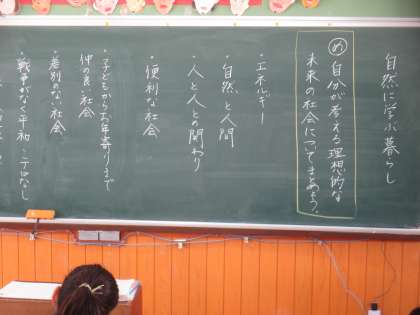 自然に学ぶ暮らし
め 自分が考える理想的な
未来の社会についてまとめよう。
・エネルギー
・自然と人間
・人と人との関わり
・便利な社会
・子どもからお年寄りまで
仲の良い社会
・差別のない社会
・戦争がなく平和 テロなし